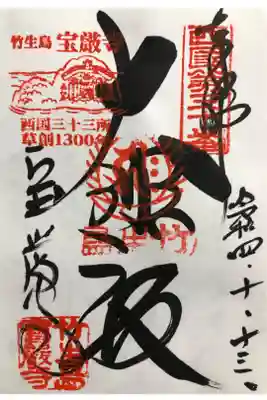 奉拝
西國第三十番
令和四・十・十三
大悲殿
竹生島 宝厳寺
西国三十三所
草創1300年
竹生島